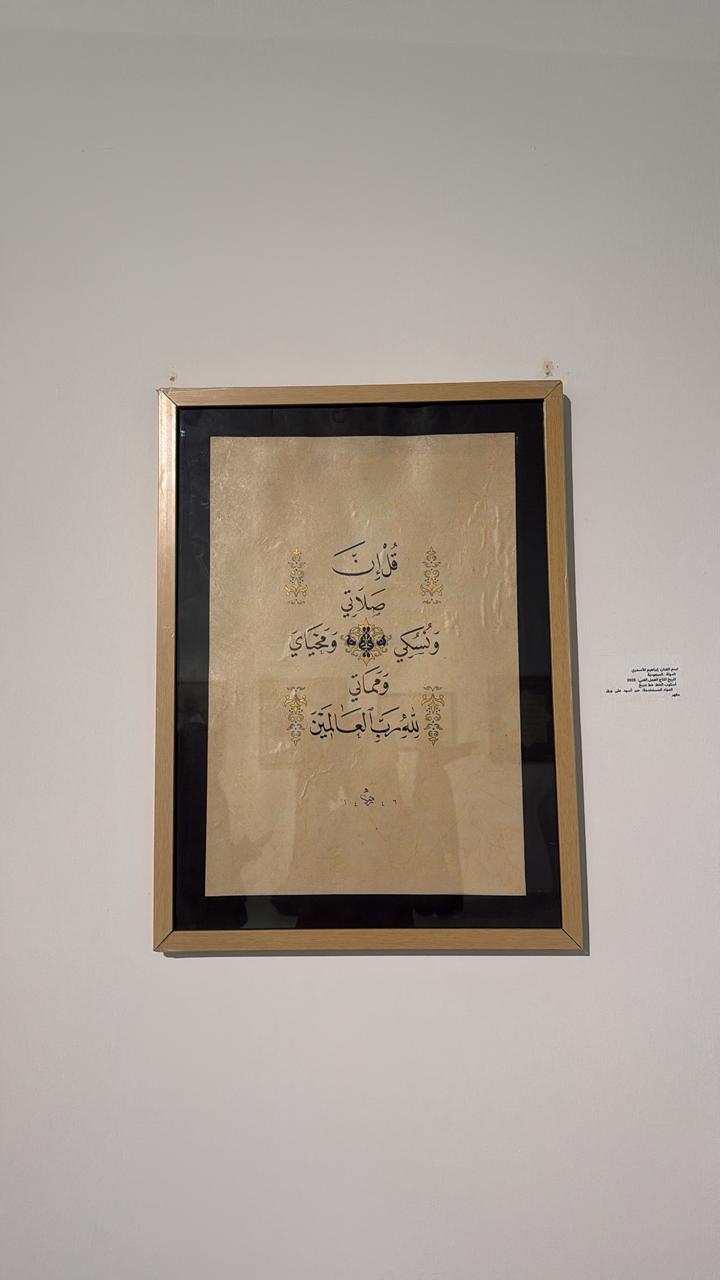 قُلْ إِنَّ
صَلَاتِي
وَنُسُكِي وَمَحْيَايَ
وَمَمَاتِي
لِلَّهِ رَبِّ العَالَمِينَ
١٤٤٦
اسم الفنان: إبراهيم الأسمري
الدولة: السعودية
تاريخ انتاج العمل الفني: 2025
أسلوب الخط: خط نسخ
المواد المستخدمة: حبر أسود على ورق
مقهر